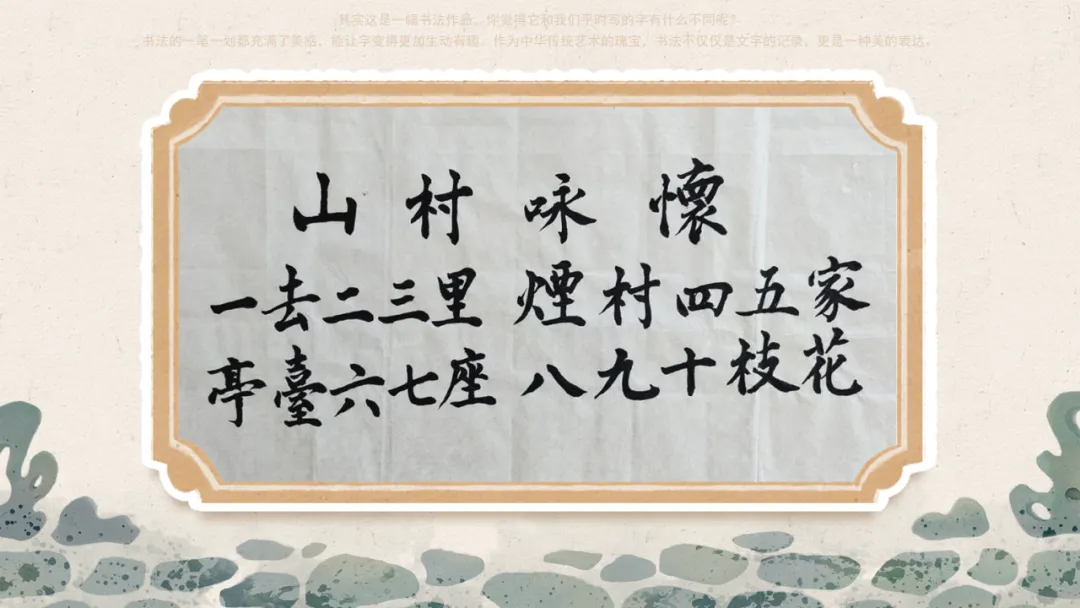 其实这是一幅书法作品，你觉得它和我们平时写的字有什么不同呢？
书法的一笔一划都充满了美感，能让字变得更加生动有趣。作为中华传统艺术的瑰宝，书法不仅仅是文字的记录，更是一种美的表达。
山村咏懷
一去二三里 煙村四五家
亭臺六七座 八九十枝花